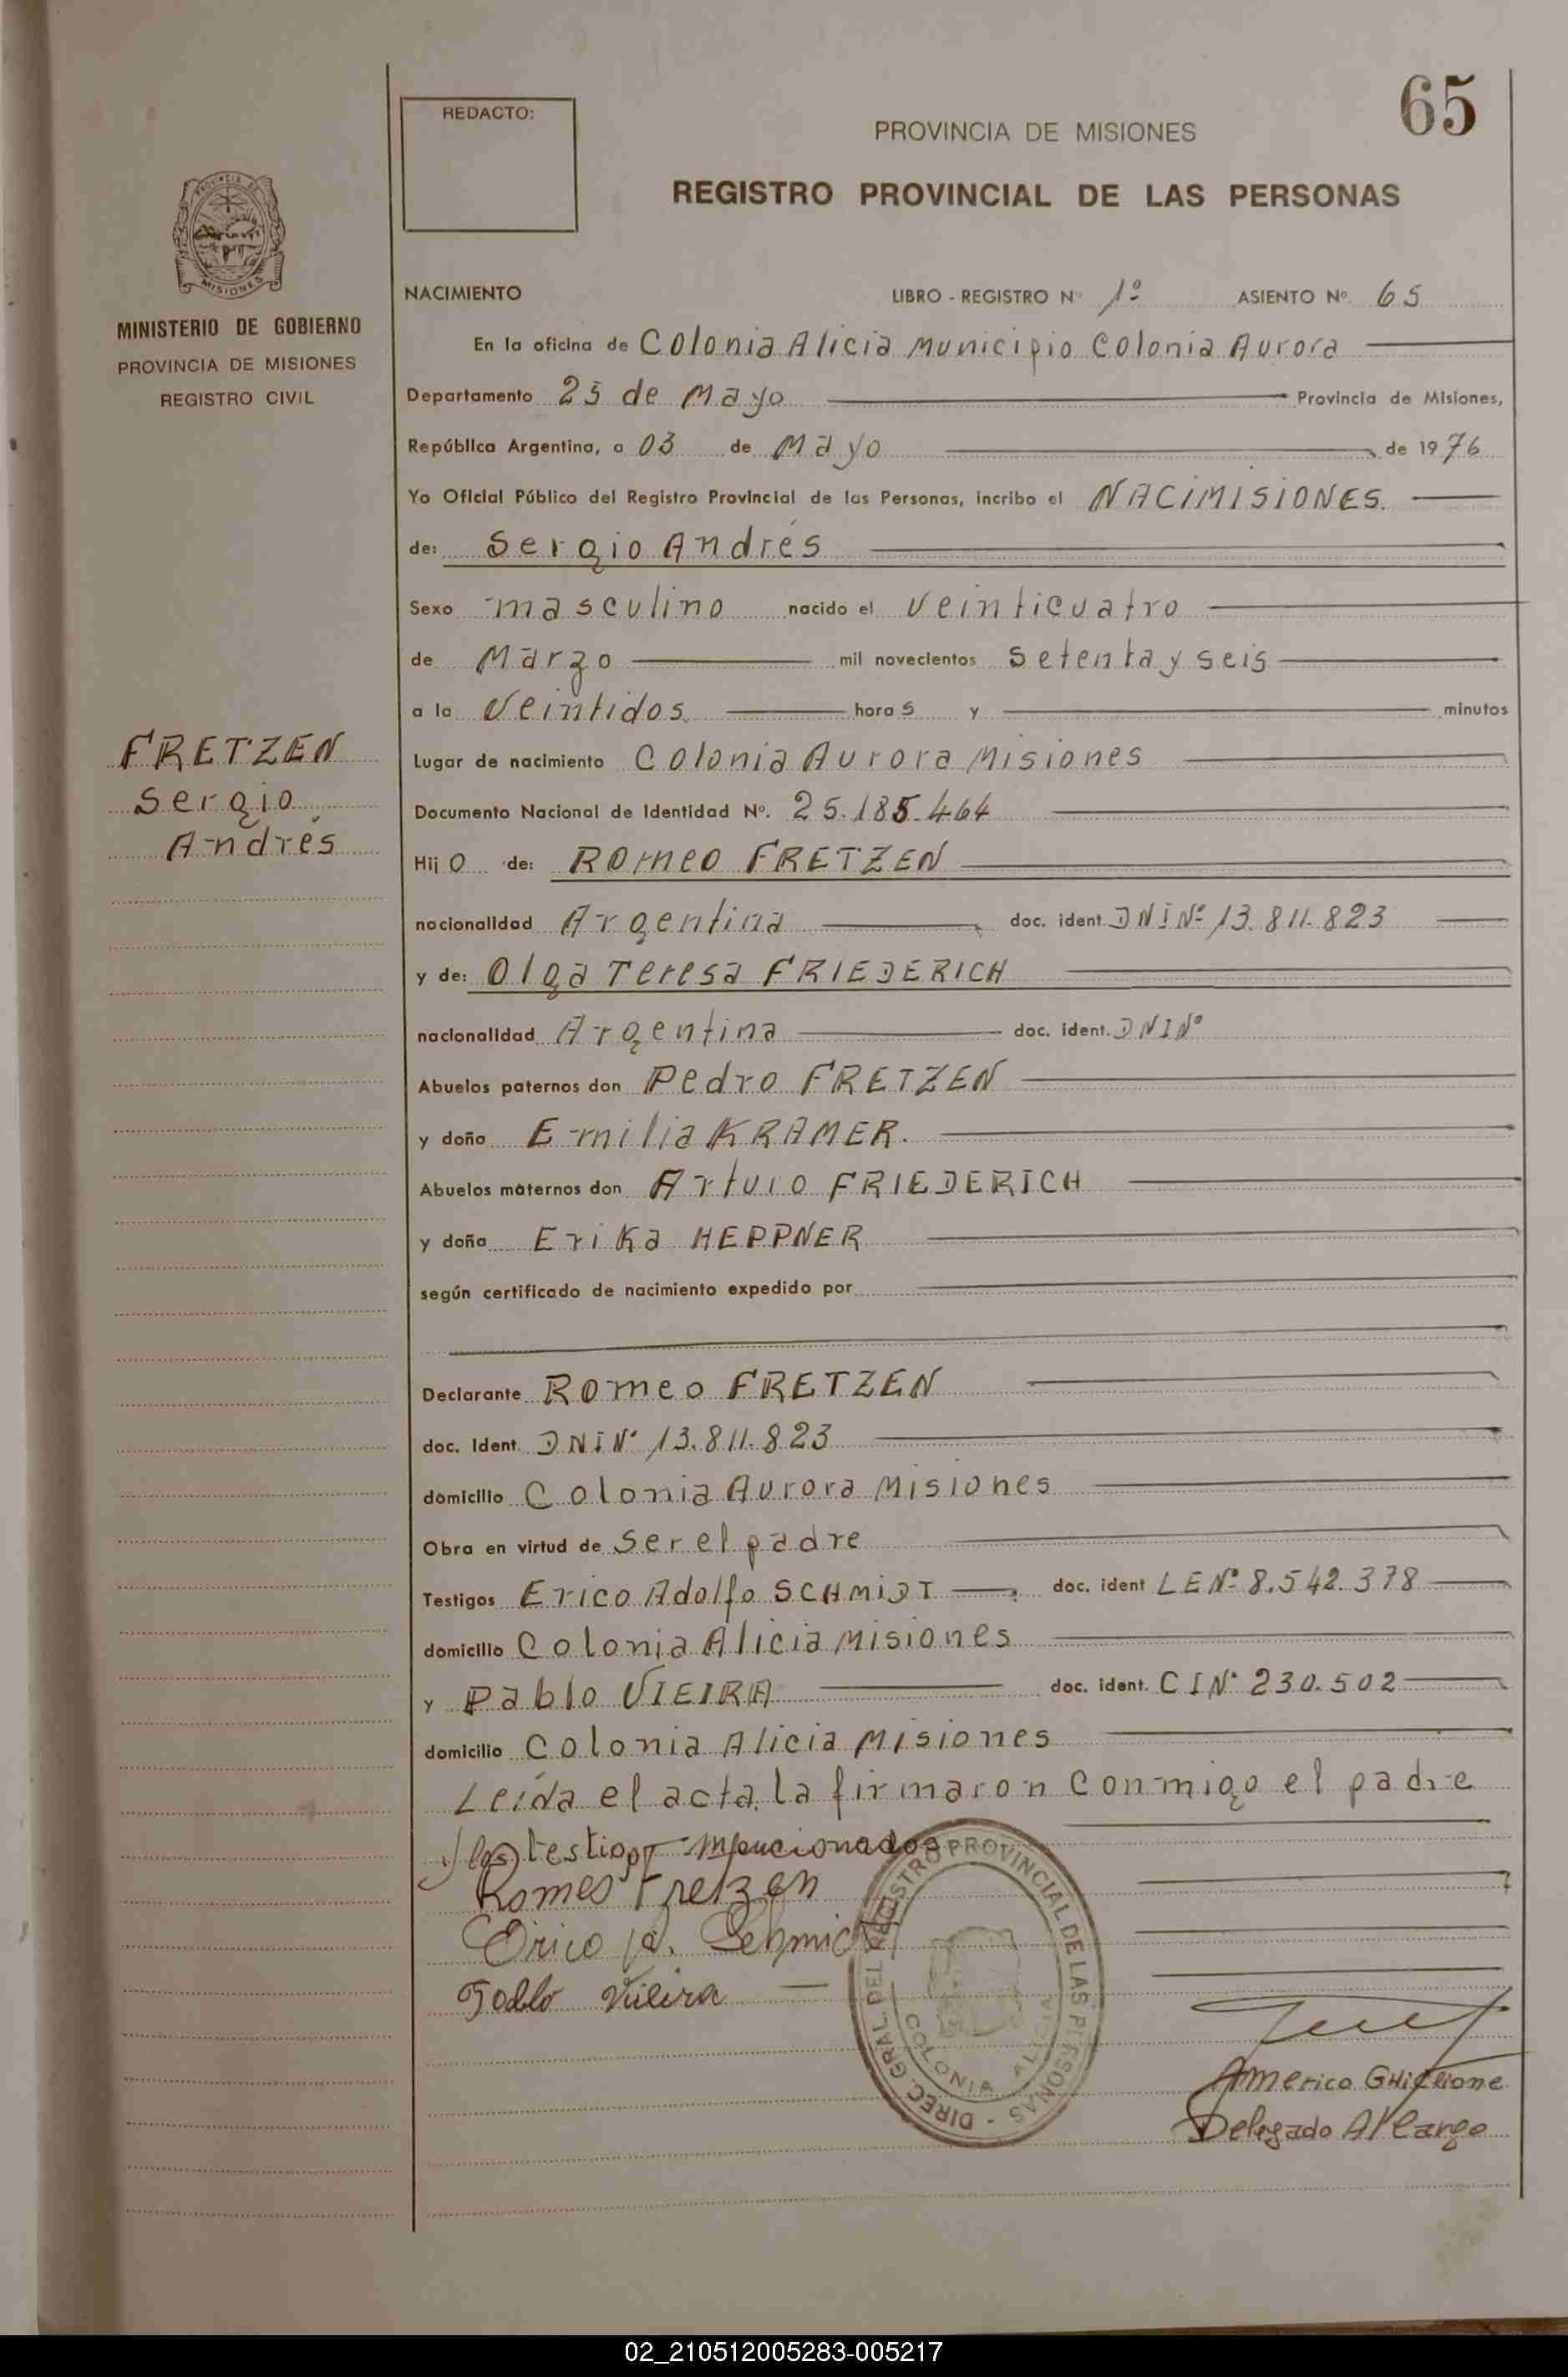 65
REDACTO:
PROVINCIA DE MISIONES
REGISTRO PROVINCIAL DE LAS PERSONAS
PROVINCIA DE
MISIONES
MINISTERIO DE GOBIERNO
PROVINCIA DE MISIONES
REGISTRO CIVIL
NACIMIENTO LIBRO - REGISTRO Nº 1º ASIENTO Nº. 65
En la oficina de Colonia Alicia Municipio Colonia Aurora
Departamento 25 de Mayo Provincia de Misiones,
República Argentina, a 03 de Mayo de 1976
Yo Oficial Público del Registro Provincial de las Personas, incribo el NACIMISIONES.
de: Sergio Andrés
Sexo masculino nacido el veinticuatro
de Marzo mil novecientos setenta y seis
a la veintidos horas y minutos
FRETZEN
Sergio
Andrés
Lugar de nacimiento Colonia Aurora Misiones
Documento Nacional de Identidad Nº. 25.185.464
Hijo de: Romeo FRETZEN
nacionalidad Argentina doc. ident. DNI Nº 13.811.823
y de: Olga Teresa FRIEDERICH
nacionalidad Argentina doc. ident. DNI Nº
Abuelos paternos don Pedro FRETZEN
y doña Emilia KRAMER.
Abuelos maternos don Arturo FRIEDERICH
y doña Erika HEPPNER
según certificado de nacimiento expedido por
Declarante Romeo FRETZEN
doc. Ident. DNI Nº 13.811.823
domicilio Colonia Aurora Misiones
Obra en virtud de ser el padre
Testigos Erico Adolfo SCHMIDT doc. ident LE Nº 8.542.378
domicilio Colonia Alicia Misiones
y Pablo VIEIRA doc. ident. CI Nº 230.502
domicilio Colonia Alicia Misiones
Leída el acta, la firmaron conmigo el padre
y los testigos mencionados
Romeo Fretzen
Erico A. Schmidt
Pablo Vieira
DIREC. GRAL DEL REGISTRO PROVINCIAL DE LAS PERSONAS
COLONIA ALICIA
Americo GHiglione
Delegado A/Cargo
02_210512005283-005217